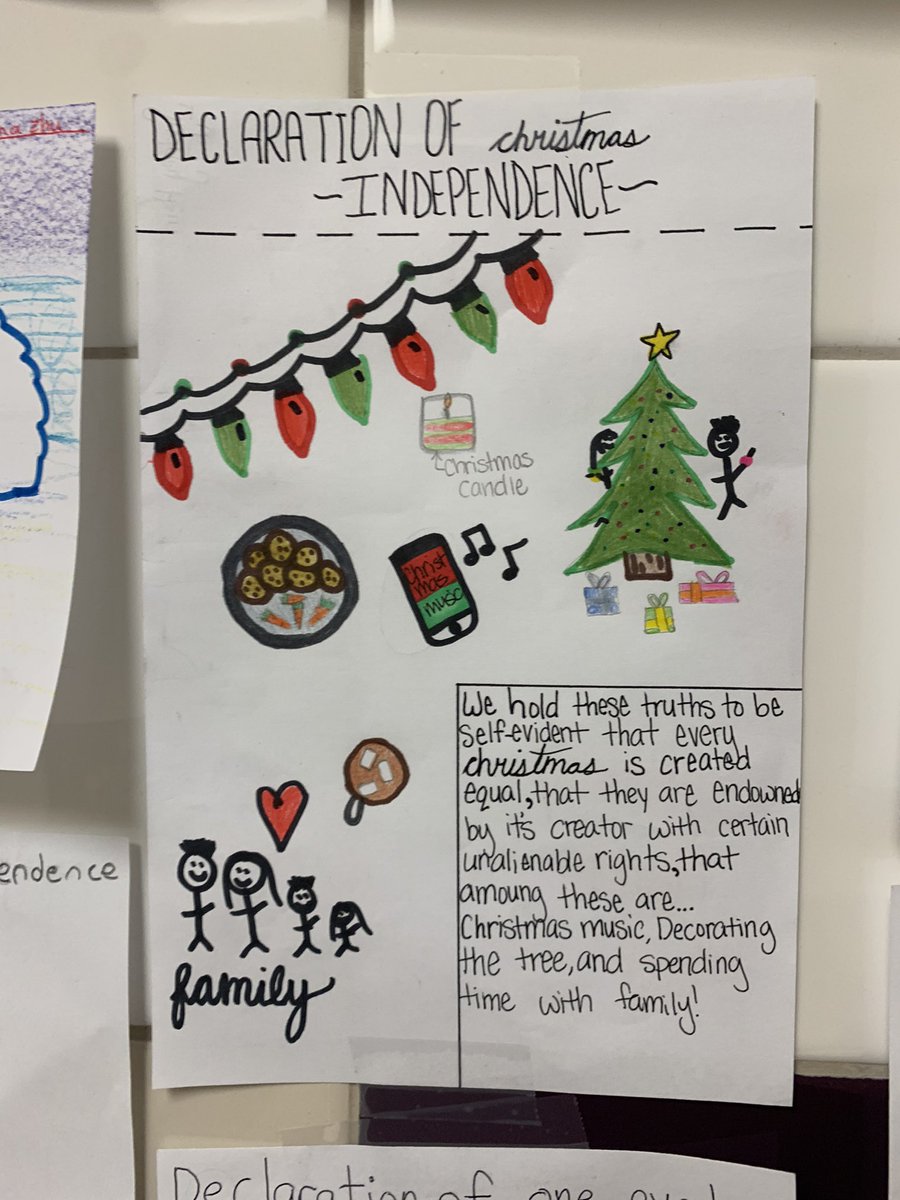 DECLARATION OF christmas
~INDEPENDENCE~
Christmas
candle
Christ
mas
music
We hold these truths to be
self-evident that every
christmas is created
equal, that they are endowned
by it's creator with certain
unalienable rights, that
amoung these are...
Christmas music, Decorating
the tree, and spending
time with family!
family
endence
Declaration of one